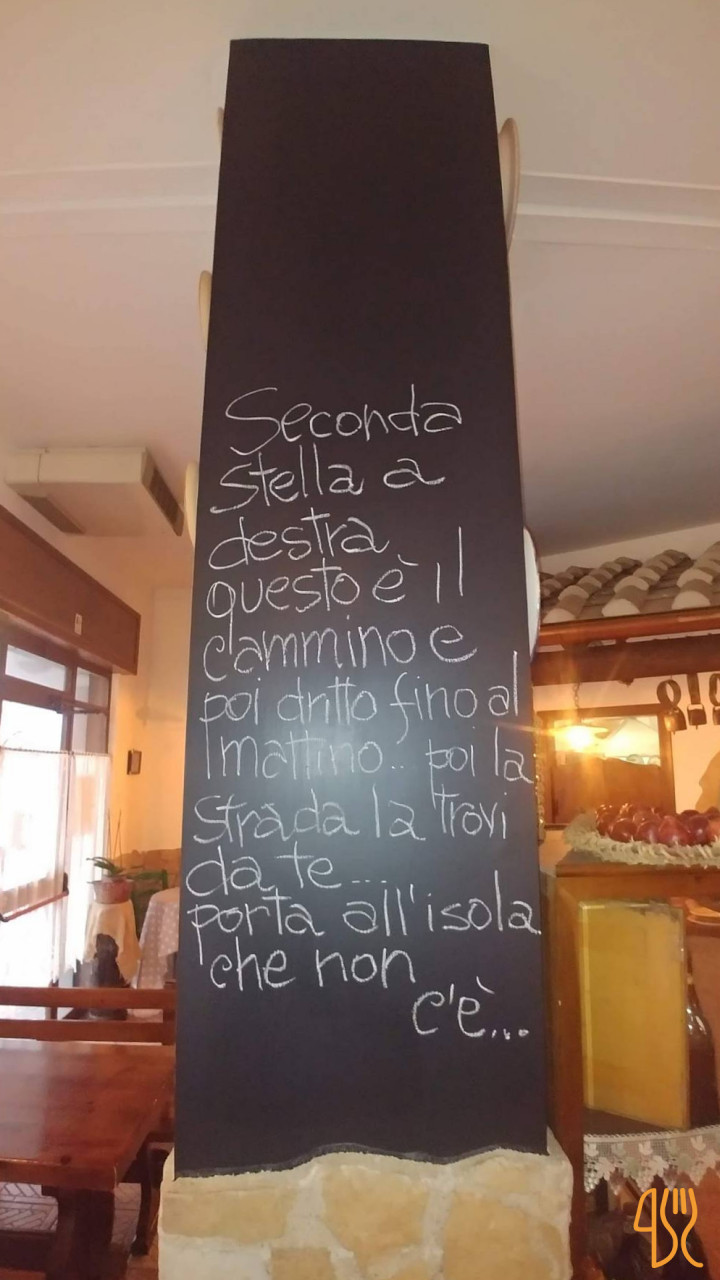 Seconda
stella a
destra
questo è il
cammino e
poi dritto fino al
mattino.. poi la
strada la trovi
da te...
porta all'isola
che non
c'è...